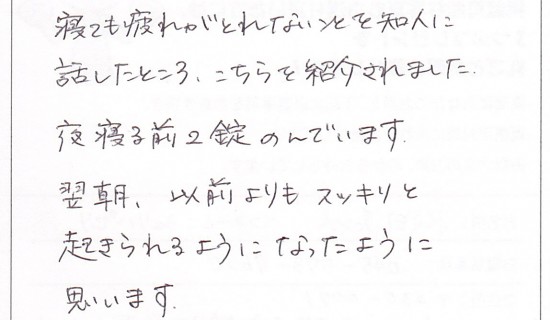 寝ても疲れがとれないことを知人に
話したところ、こちらを紹介されました.
夜寝る前2錠のんでいます.
翌朝、以前よりもスッキリと
起きられるようになったように
思います.